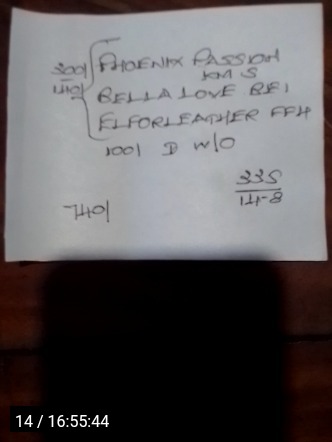 300/ PHOENIX PASSION
KM S
140/ BELLA LOVE BE1
ELFORLEATHER FFH
100/ D W/O
335
14-8
740/
14 / 16:55:44